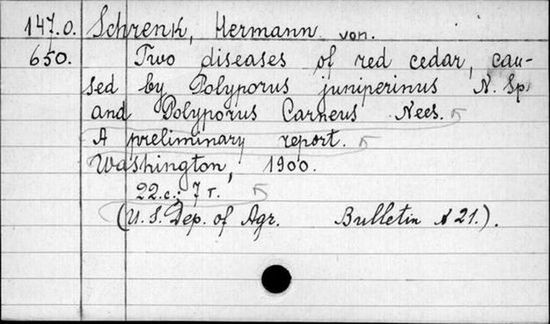 147.0. Schrenk, Hermann von.
650. Two diseases of red cedar, cau-
sed by Polyporus juniperinus N. Sp.
and Polyporus Carneus Nees.
A preliminary report.
Washington, 1900.
22.c.; 7 т.
(U.S. Dep. of Agr. Bulletin № 21.).